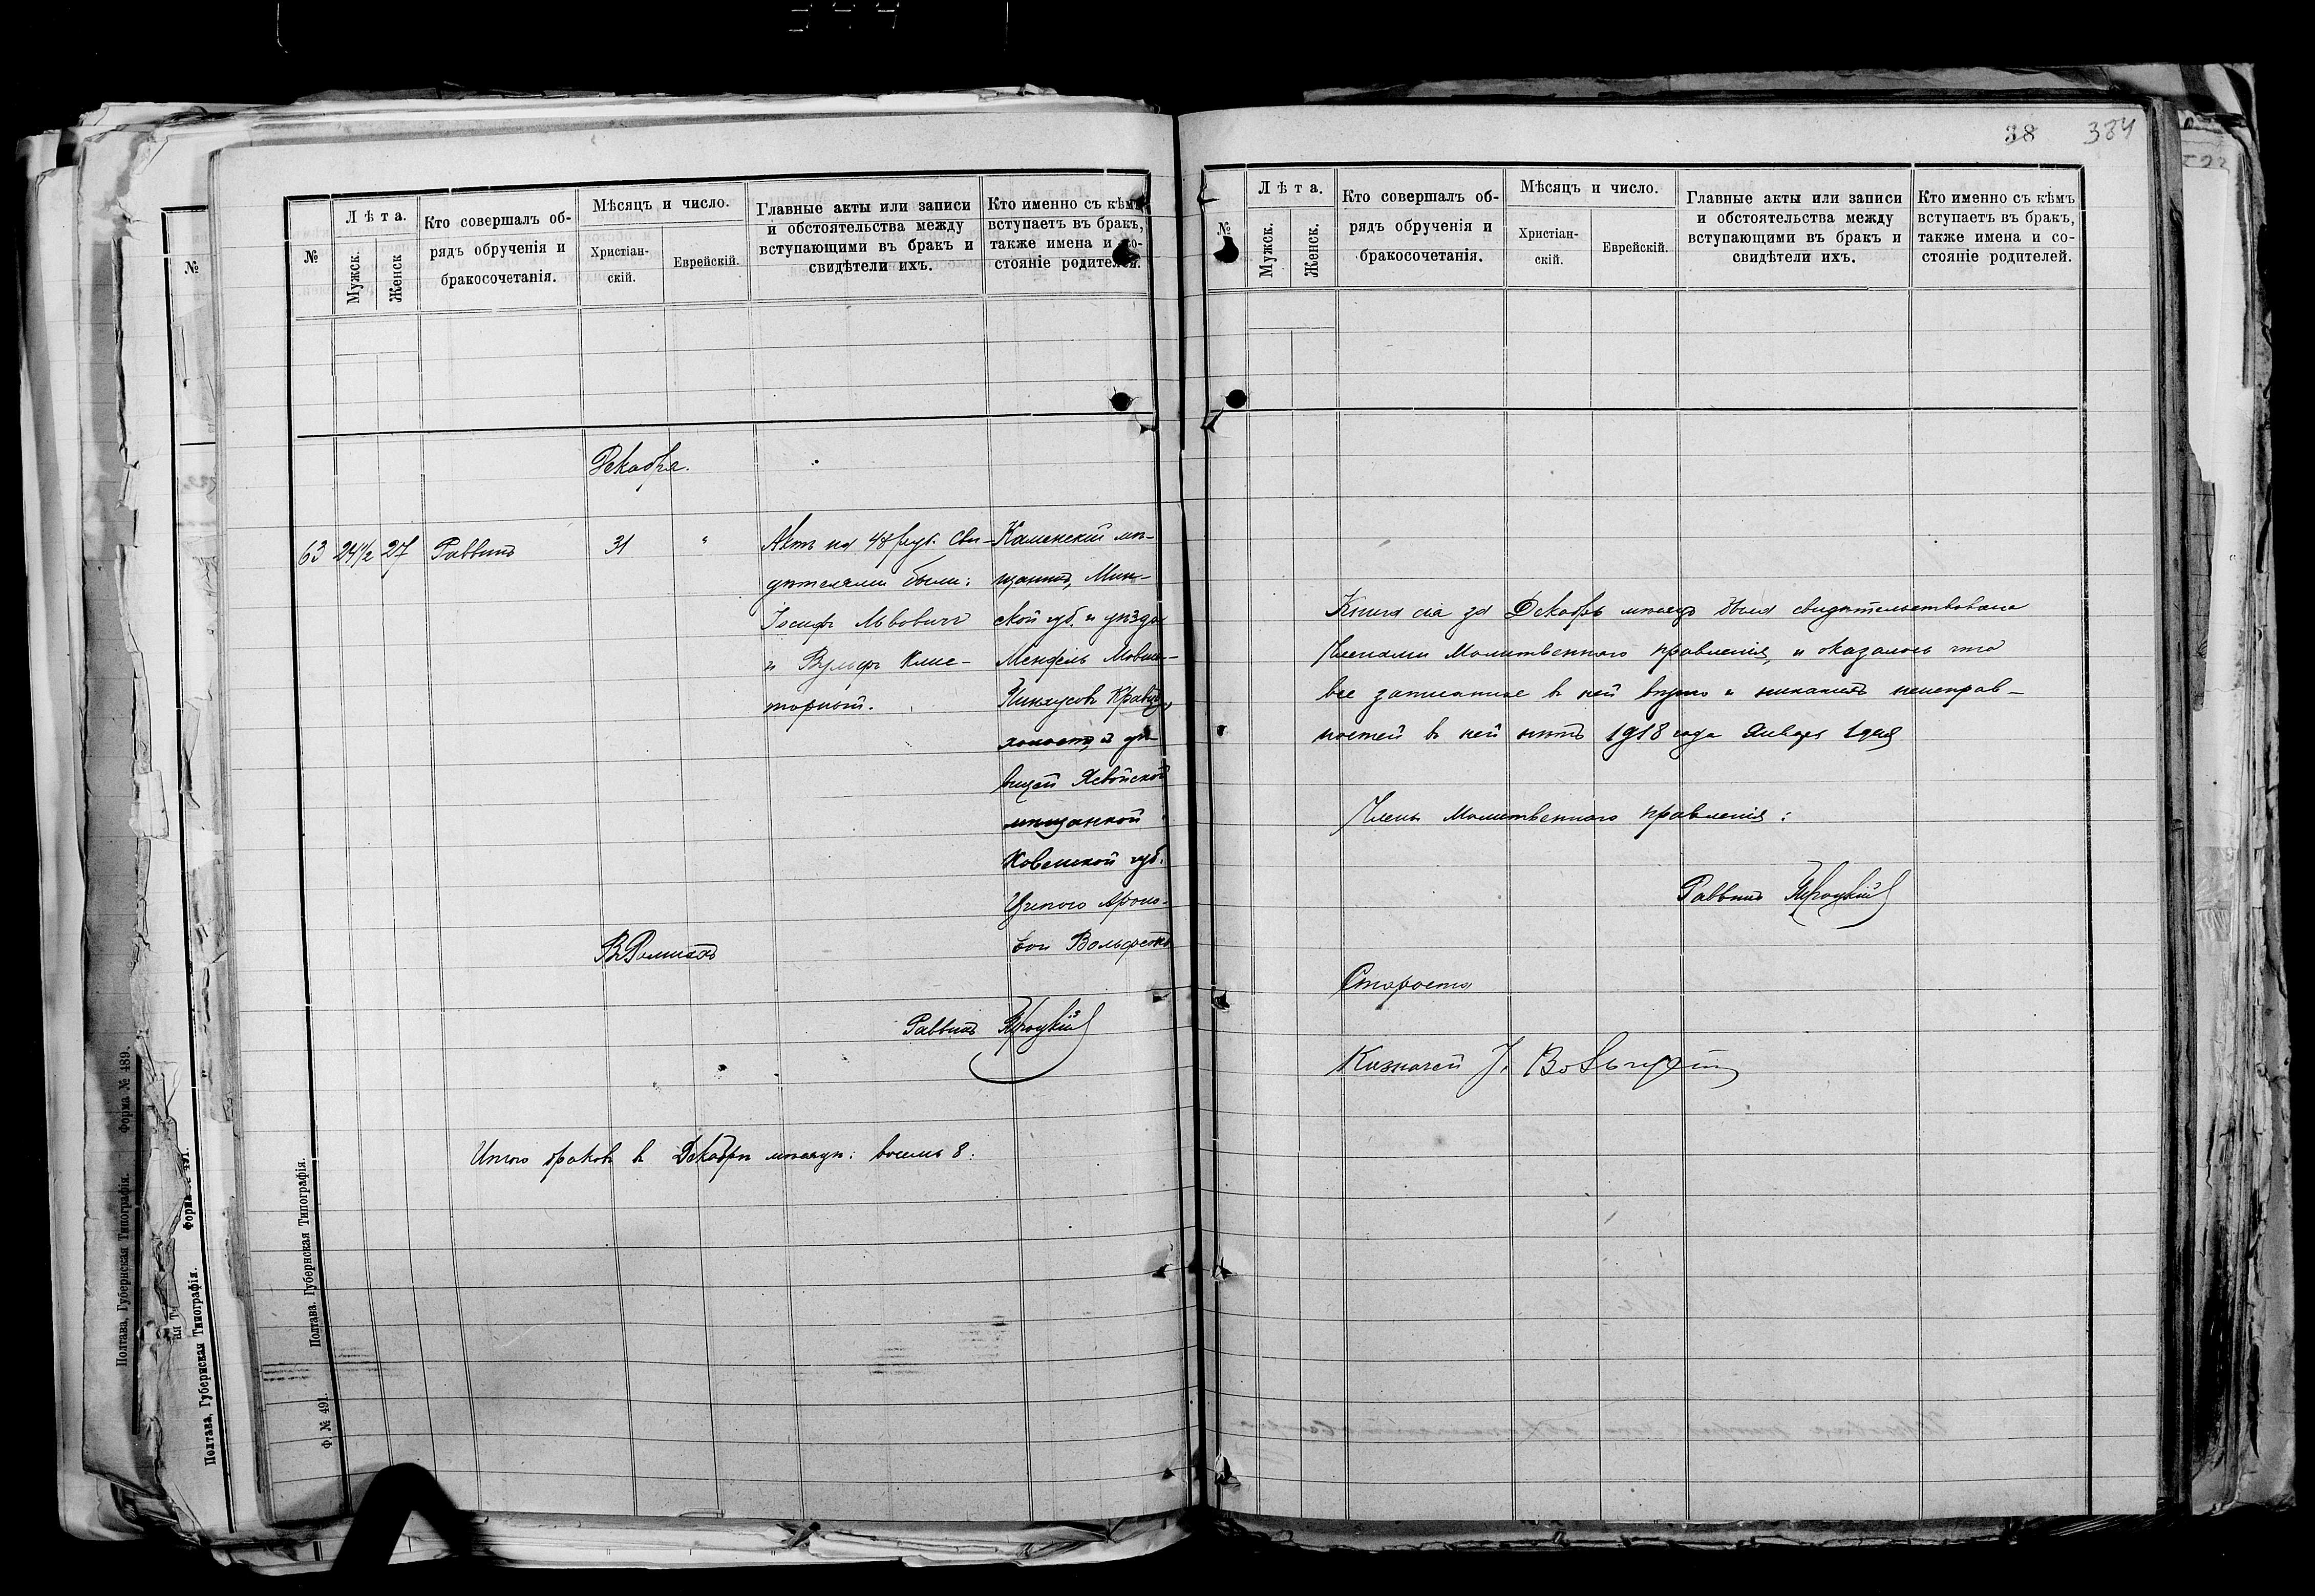 38 384
№
Лѣта.
Мужск.
Женск
Кто совершалъ об-
рядъ обрученія и
бракосочетанія.
Мѣсяцъ и число.
Христіан-
скій.
Еврейскій.
Главные акты или записи
и обстоятельства между
вступающими въ бракъ и
свидѣтели ихъ.
Кто именно съ кѣмъ
вступаетъ въ бракъ,
также имена и со-
стояніе родителей.
Декабрь.
63 24½ 27 Раввинъ 31 "
Актъ на 48 рук. Сви-
дѣтелями были:
Іосифъ Львовичъ
и Вульфъ Клис-
торный.
Каменскій мѣ-
щанинъ, Мин-
ской губ. и уѣзда
Мендель Мовша-
Пинхусовъ
холостъ, съ дѣ-
вицей
мѣщанкой
Ковенской губ.
Ароно-
вой
Раввинъ
Итого браковъ въ Декабрѣ мѣсяцѣ: восемь 8.
Полтава. Губернская Типографія.
Ф. № 491.
Полтава, Губернская Типографія. Форма № 489.
Полтава, Губернская Типографія.
№
№
Лѣта.
Мужск.
Женск.
Кто совершалъ об-
рядъ обрученія и
бракосочетанія.
Мѣсяцъ и число.
Христіан-
скій.
Еврейскій.
Главные акты или записи
и обстоятельства между
вступающими въ бракъ и
свидѣтели ихъ.
Кто именно съ кѣмъ
вступаетъ въ бракъ,
также имена и со-
стояніе родителей.
Книга сія за Декабрь мѣсяцъ была свидѣтельствована
Членами Молитвеннаго правленія, и оказалось что
все записанное въ ней вѣрно и никакихъ неисправ-
ностей въ ней нѣтъ 1918 года Января 1 дня
Члены Молитвеннаго правленія:
Раввинъ
Староста
Казначей